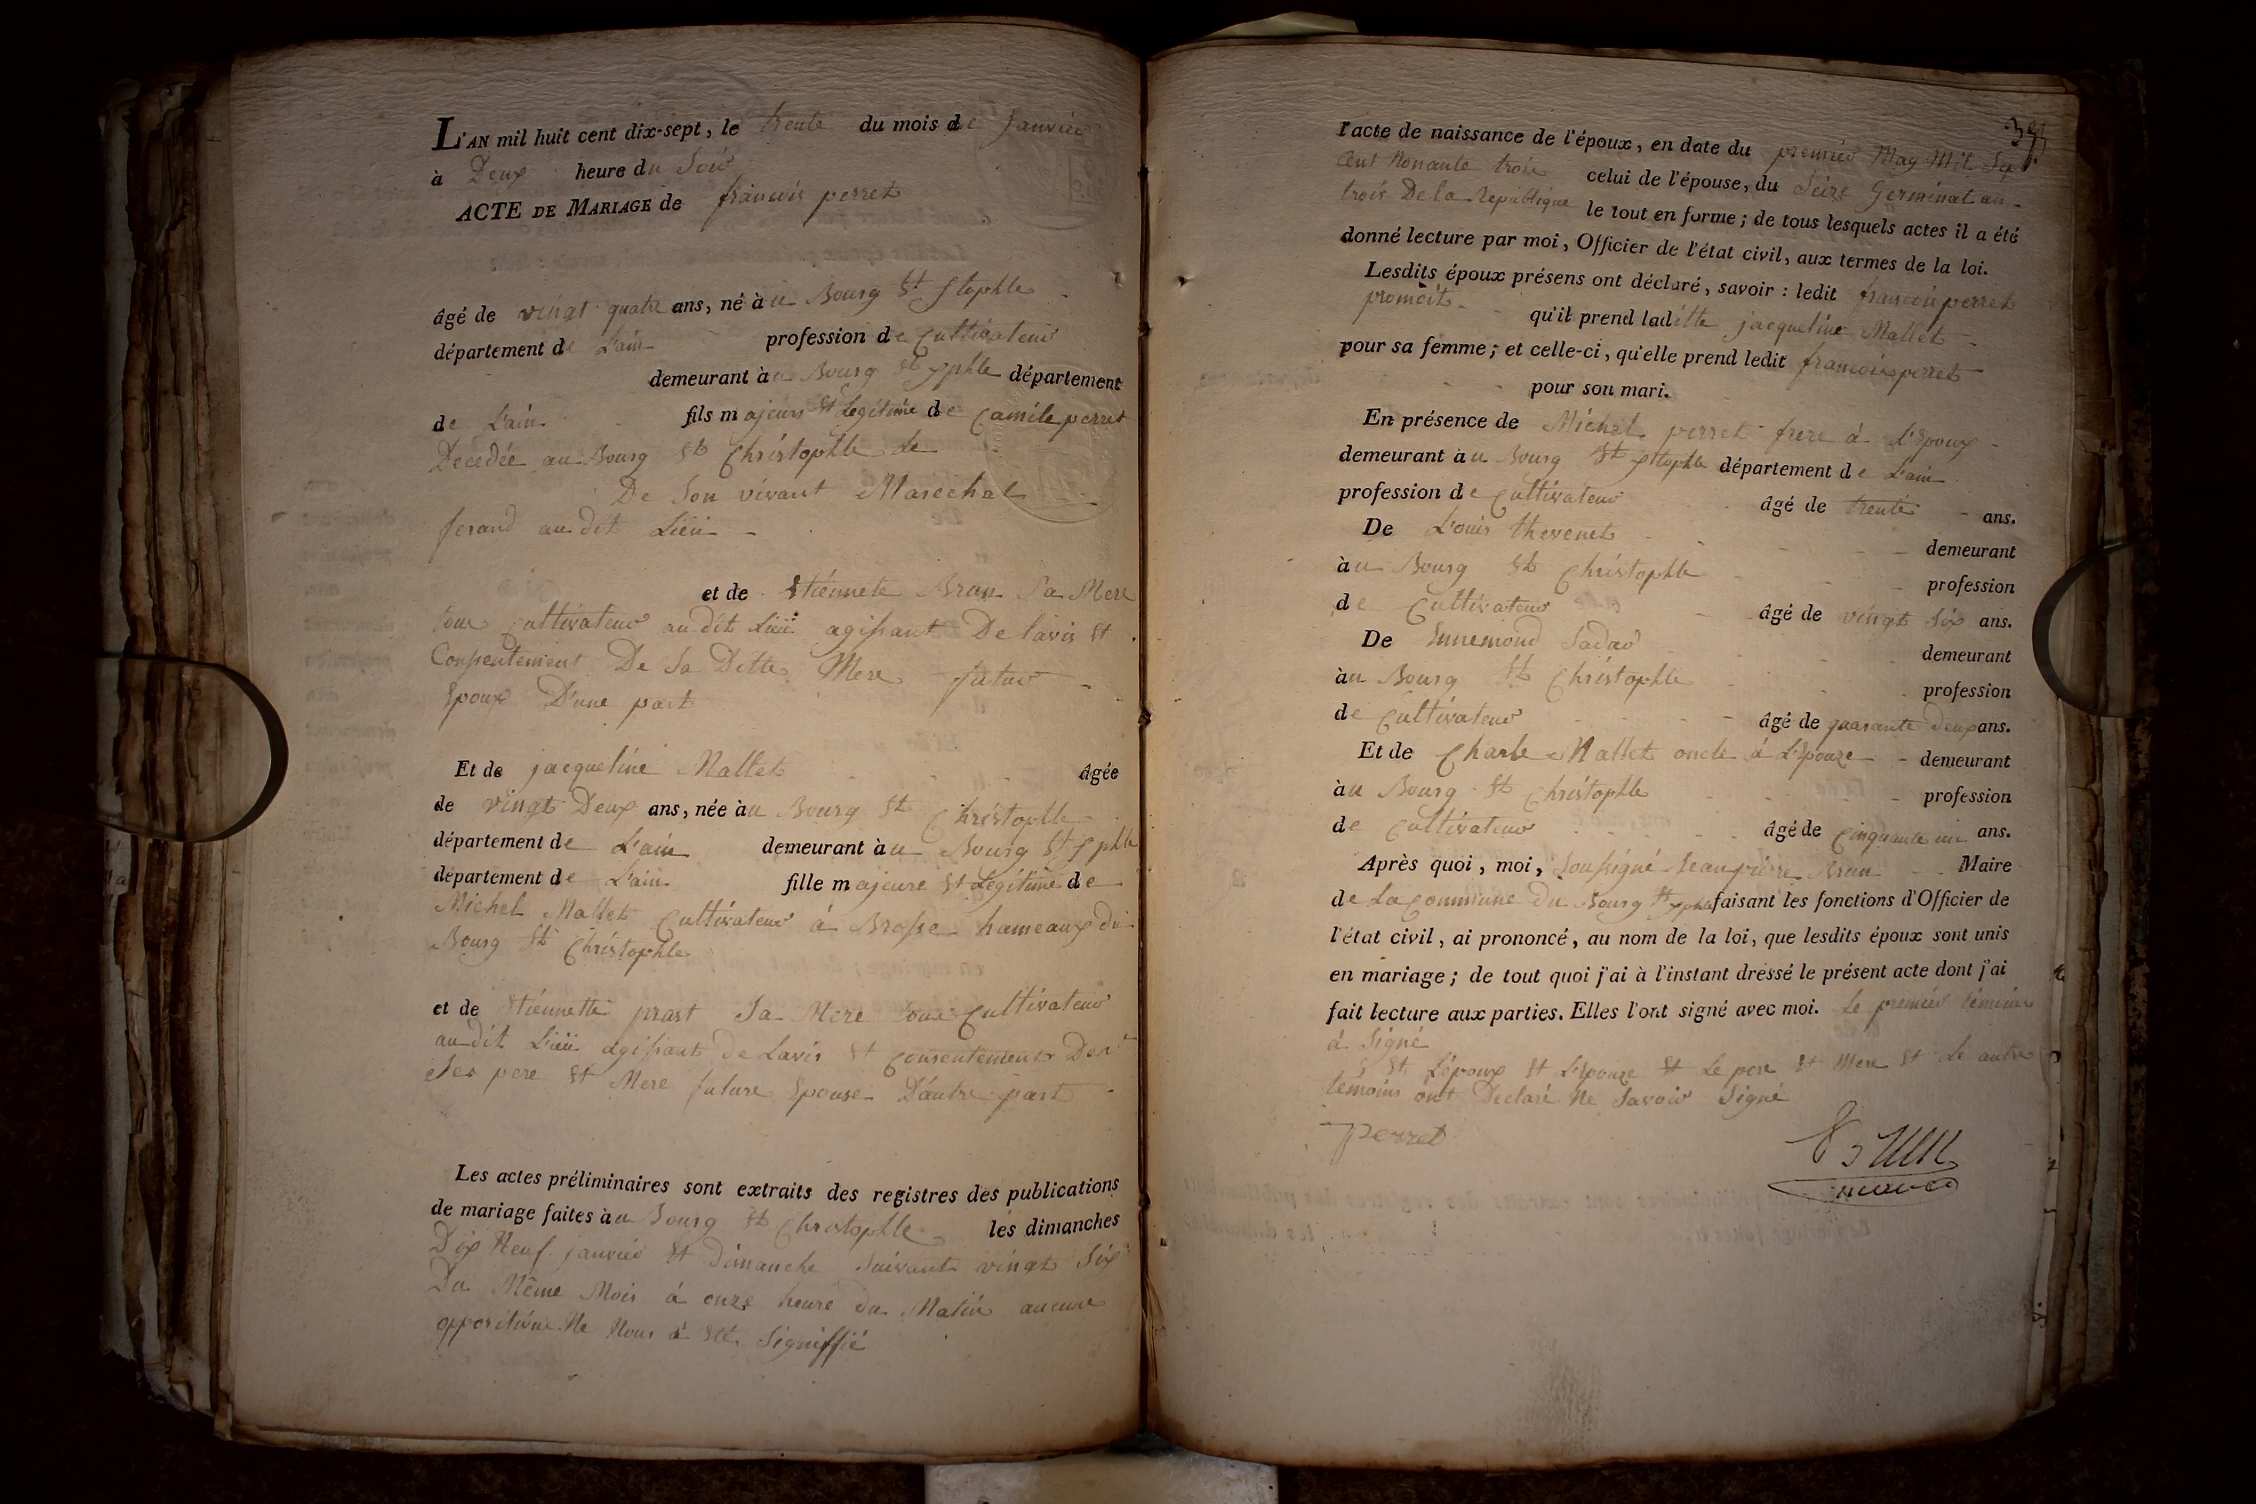 L'AN mil huit cent dix-sept, le trente du mois de Janvier
à Deux heure du Soir
ACTE DE MARIAGE de francois perret
âgé de vingt quatre ans, né au Bourg St Stophle
département de L'ain profession de Cultivateur
demeurant au Bourg St xphle département
de L'ain fils majeur Et Legitime de Camile perret
Decedée au Bourg St Christophle Le
De Son vivant Marechal
ferand au dit Lieu
et de Etiennete Brun Sa Mere
tous Cultivateur au dit Lieu agissant De lavis Et
Consentement De Sa Ditte Mere futur
Epoux D'une part
Et de jacqueline Mallet âgée
de vingt Deux ans, née au Bourg St Christophle
département de L'ain demeurant au Bourg St xphle
département de L'ain fille majeure Et Legitime de
Michel Mallet Cultivateur à Brosse hameaux du
Bourg St Christophle
et de Etiennette prast Sa Mere tous Cultivateur
au dit Lieu agissant de Lavis Et Consentement De
Ses pere Et Mere future Epouse D'autre part
Les actes préliminaires sont extraits des registres des publications
de mariage faites au Bourg St Christophle les dimanches
Dix Neuf janvier Et dimanche Suivant vingt Six
Du Même Mois à onze heure du Matin aucune
opposition Ne Nous à Eté Signiffié
l'acte de naissance de l'époux, en date du premier May Mil Sept
Cent Nonante trois celui de l'épouse, du Seize Germinal an
trois De la Republique le tout en forme ; de tous lesquels actes il a été
donné lecture par moi, Officier de l'état civil, aux termes de la loi.
Lesdits époux présens ont déclaré, savoir : ledit francois perret
promeit qu'il prend laditte jacqueline Mallet
pour sa femme ; et celle-ci, qu'elle prend ledit francois perret
pour son mari.
En présence de Michel perret frere à L'Epoux
demeurant au Bourg St Stophle département de L'ain
profession de Cultivateur âgé de trente ans.
De Louis thevenet demeurant
au Bourg St Christophle profession
de Cultivateur âgé de vingt Six ans.
De Ennemond demeurant
au Bourg St Christophle profession
de Cultivateur âgé de quarante deux ans.
Et de Charle Mallet oncle à L'Epouze demeurant
au Bourg St Christophle profession
de Cultivateur âgé de Cinquante un ans.
Après quoi, moi, Soussigné Jean pierre Brun Maire
de La Commune Du Bourg St xphle faisant les fonctions d'Officier de
l'état civil, ai prononcé, au nom de la loi, que lesdits époux sont unis
en mariage ; de tout quoi j'ai à l'instant dressé le présent acte dont j'ai
fait lecture aux parties. Elles l'ont signé avec moi. Le premier témoins
à Signé
Et L'époux Et L'Epouze Et Le pere Et Mere Et Le autre
temoins ont Declaré Ne Savoir Signé
perret
Brun
maire